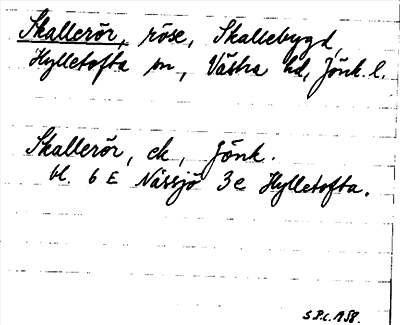 Skallerör, röse, Skallebygd,
Hylletofta sn, Västra hd, Jönk. l.
Skallerör, ek, Jönk.
bl. 6 E Nässjö 3 e Hylletofta.
1958.